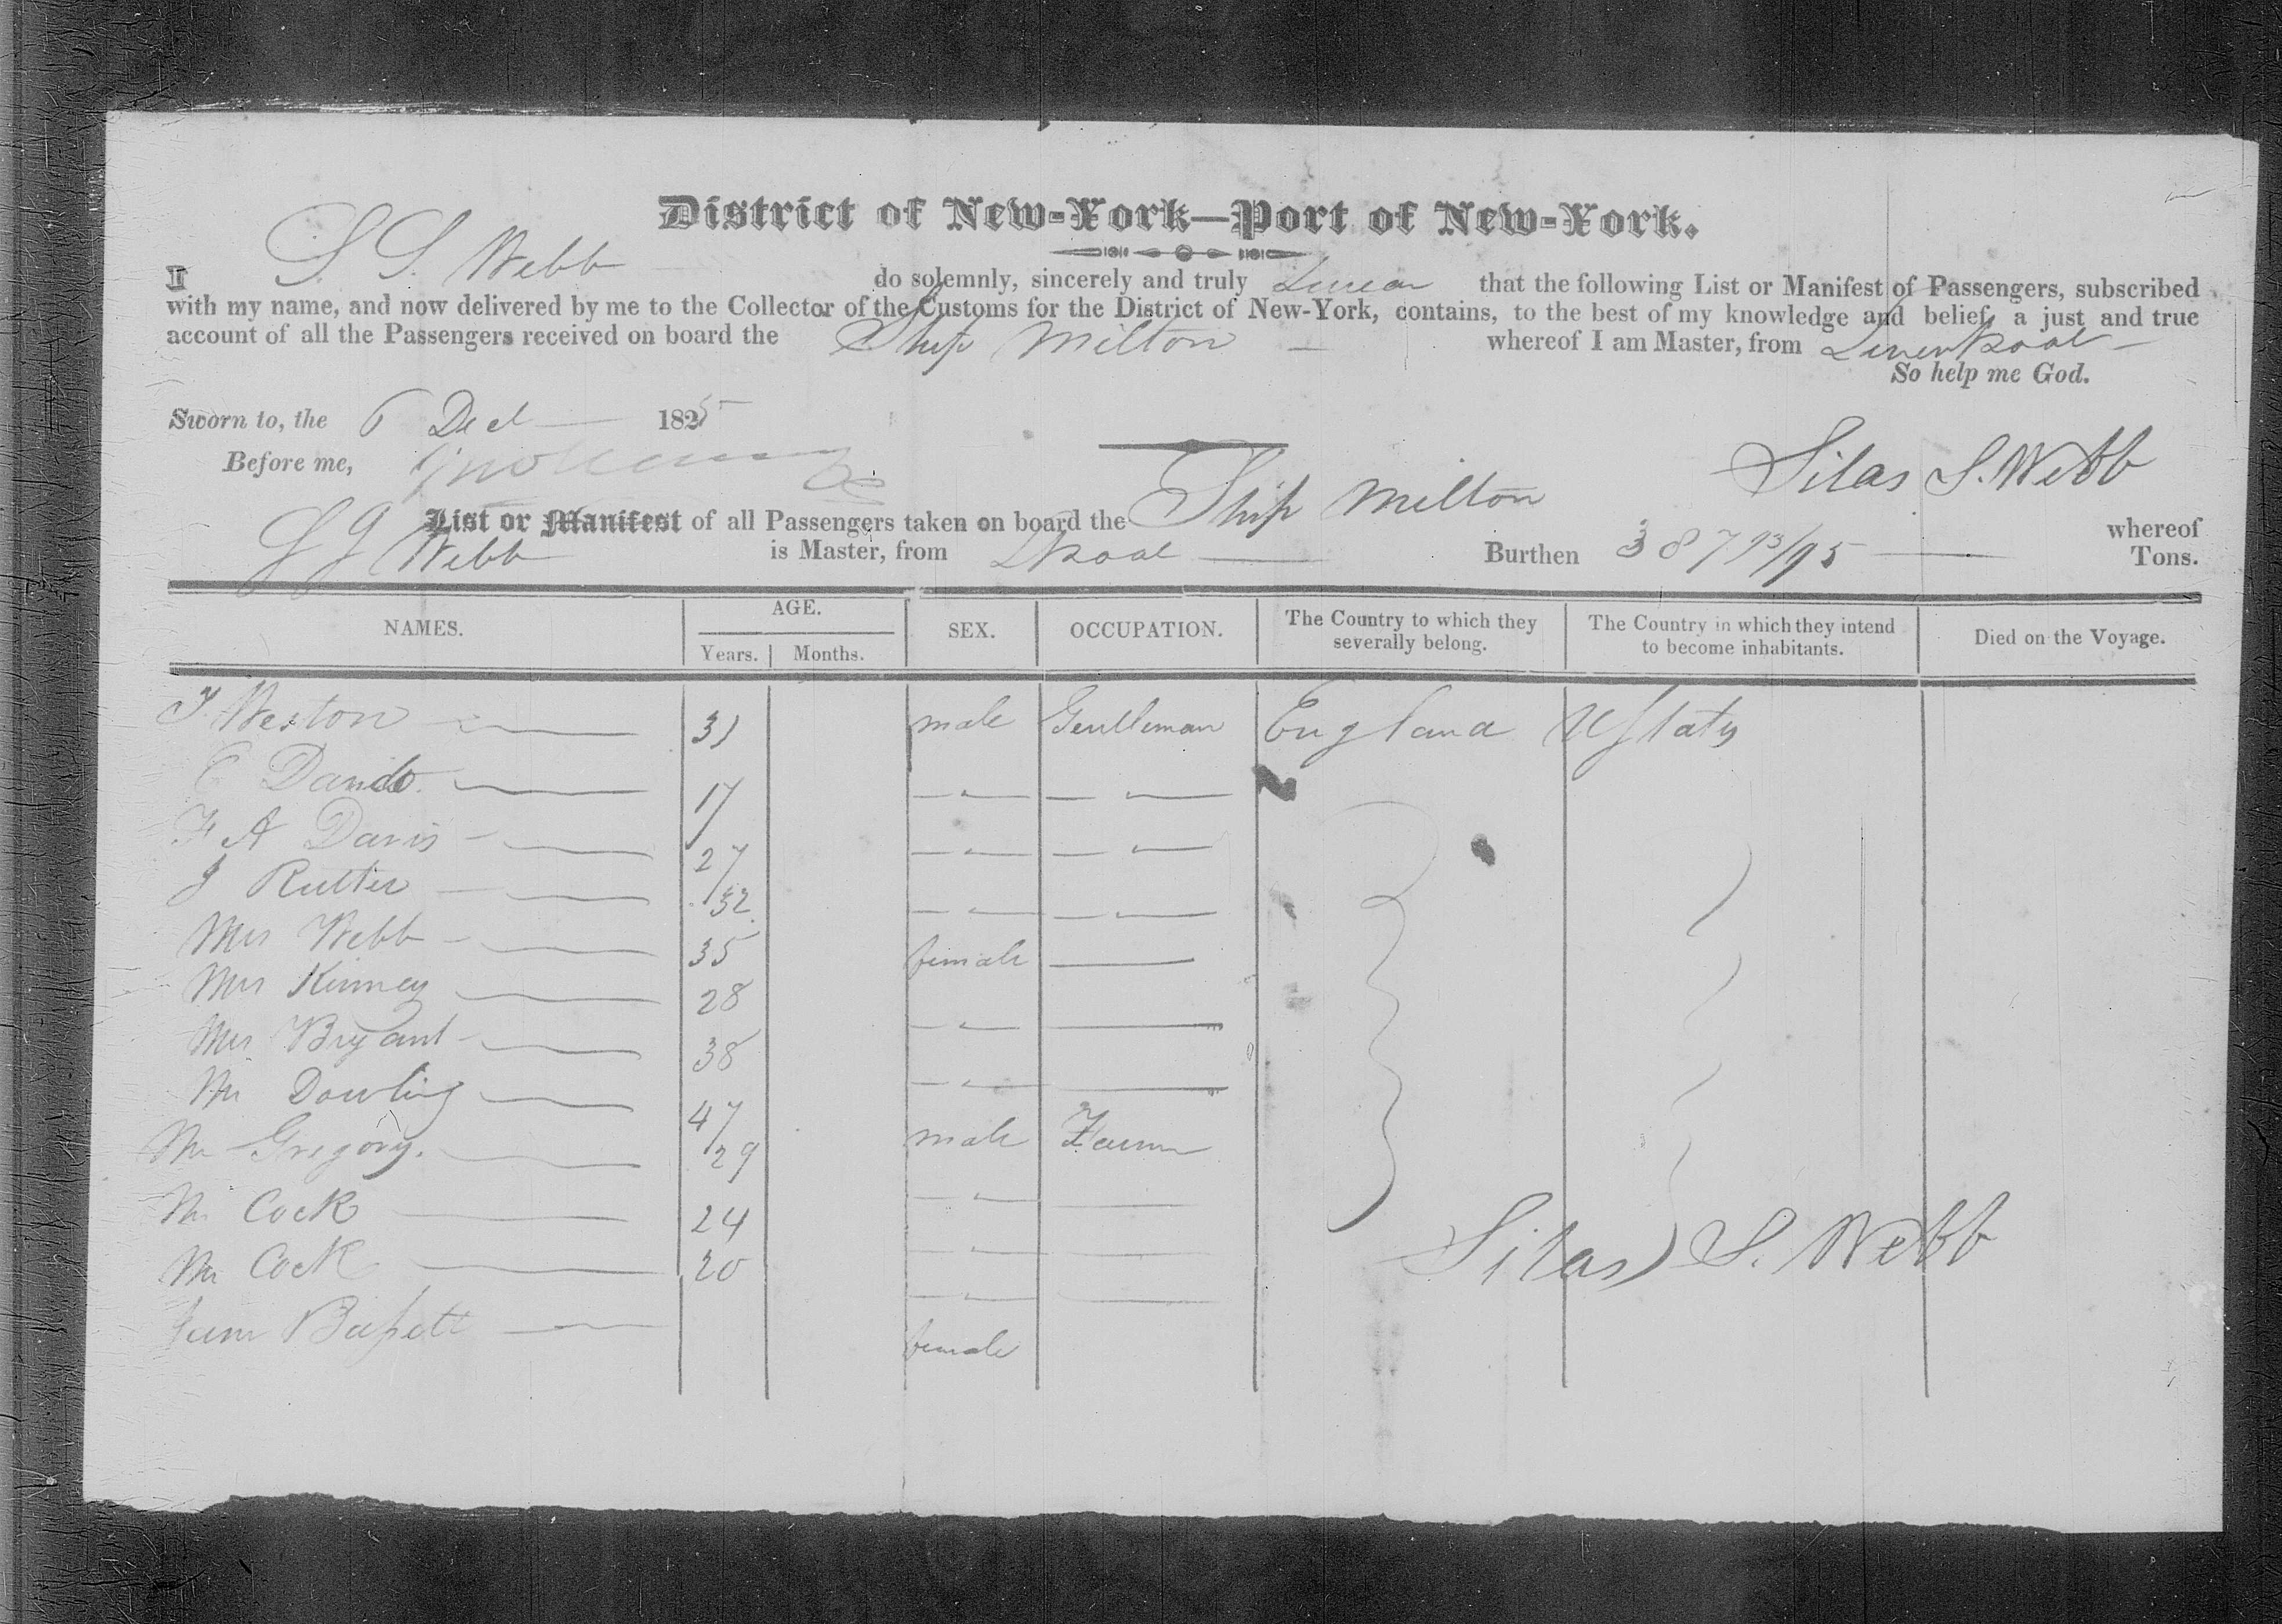 District of New-York—Port of New-York.
I S. S. Webb do solemnly, sincerely and truly Swear that the following List or Manifest of Passengers, subscribed
with my name, and now delivered by me to the Collector of the Customs for the District of New-York, contains, to the best of my knowledge and belief, a just and true
account of all the Passengers received on board the Ship Milton whereof I am Master, from Liverpool
So help me God.
Sworn to, the 6 Decr 1825
Before me,
Silas S. Webb
List or Manifest of all Passengers taken on board the Ship Milton whereof
S S Webb is Master, from Lpool Burthen 387 93/95 Tons.
NAMES. AGE. SEX. OCCUPATION. The Country to which they severally belong. The Country in which they intend to become inhabitants. Died on the Voyage.
Years. Months.
Weston 31 male Gentleman England UStates
17
A Davis 27
J Rutter 32
Mrs Webb 35 female
Mrs Kinney 28
Mrs Bryant 38
Mr Dowling 47 male Farmer
Mr Gregory. 29
Mr Cock 24
Mr Cock 20
female
Silas S. Webb